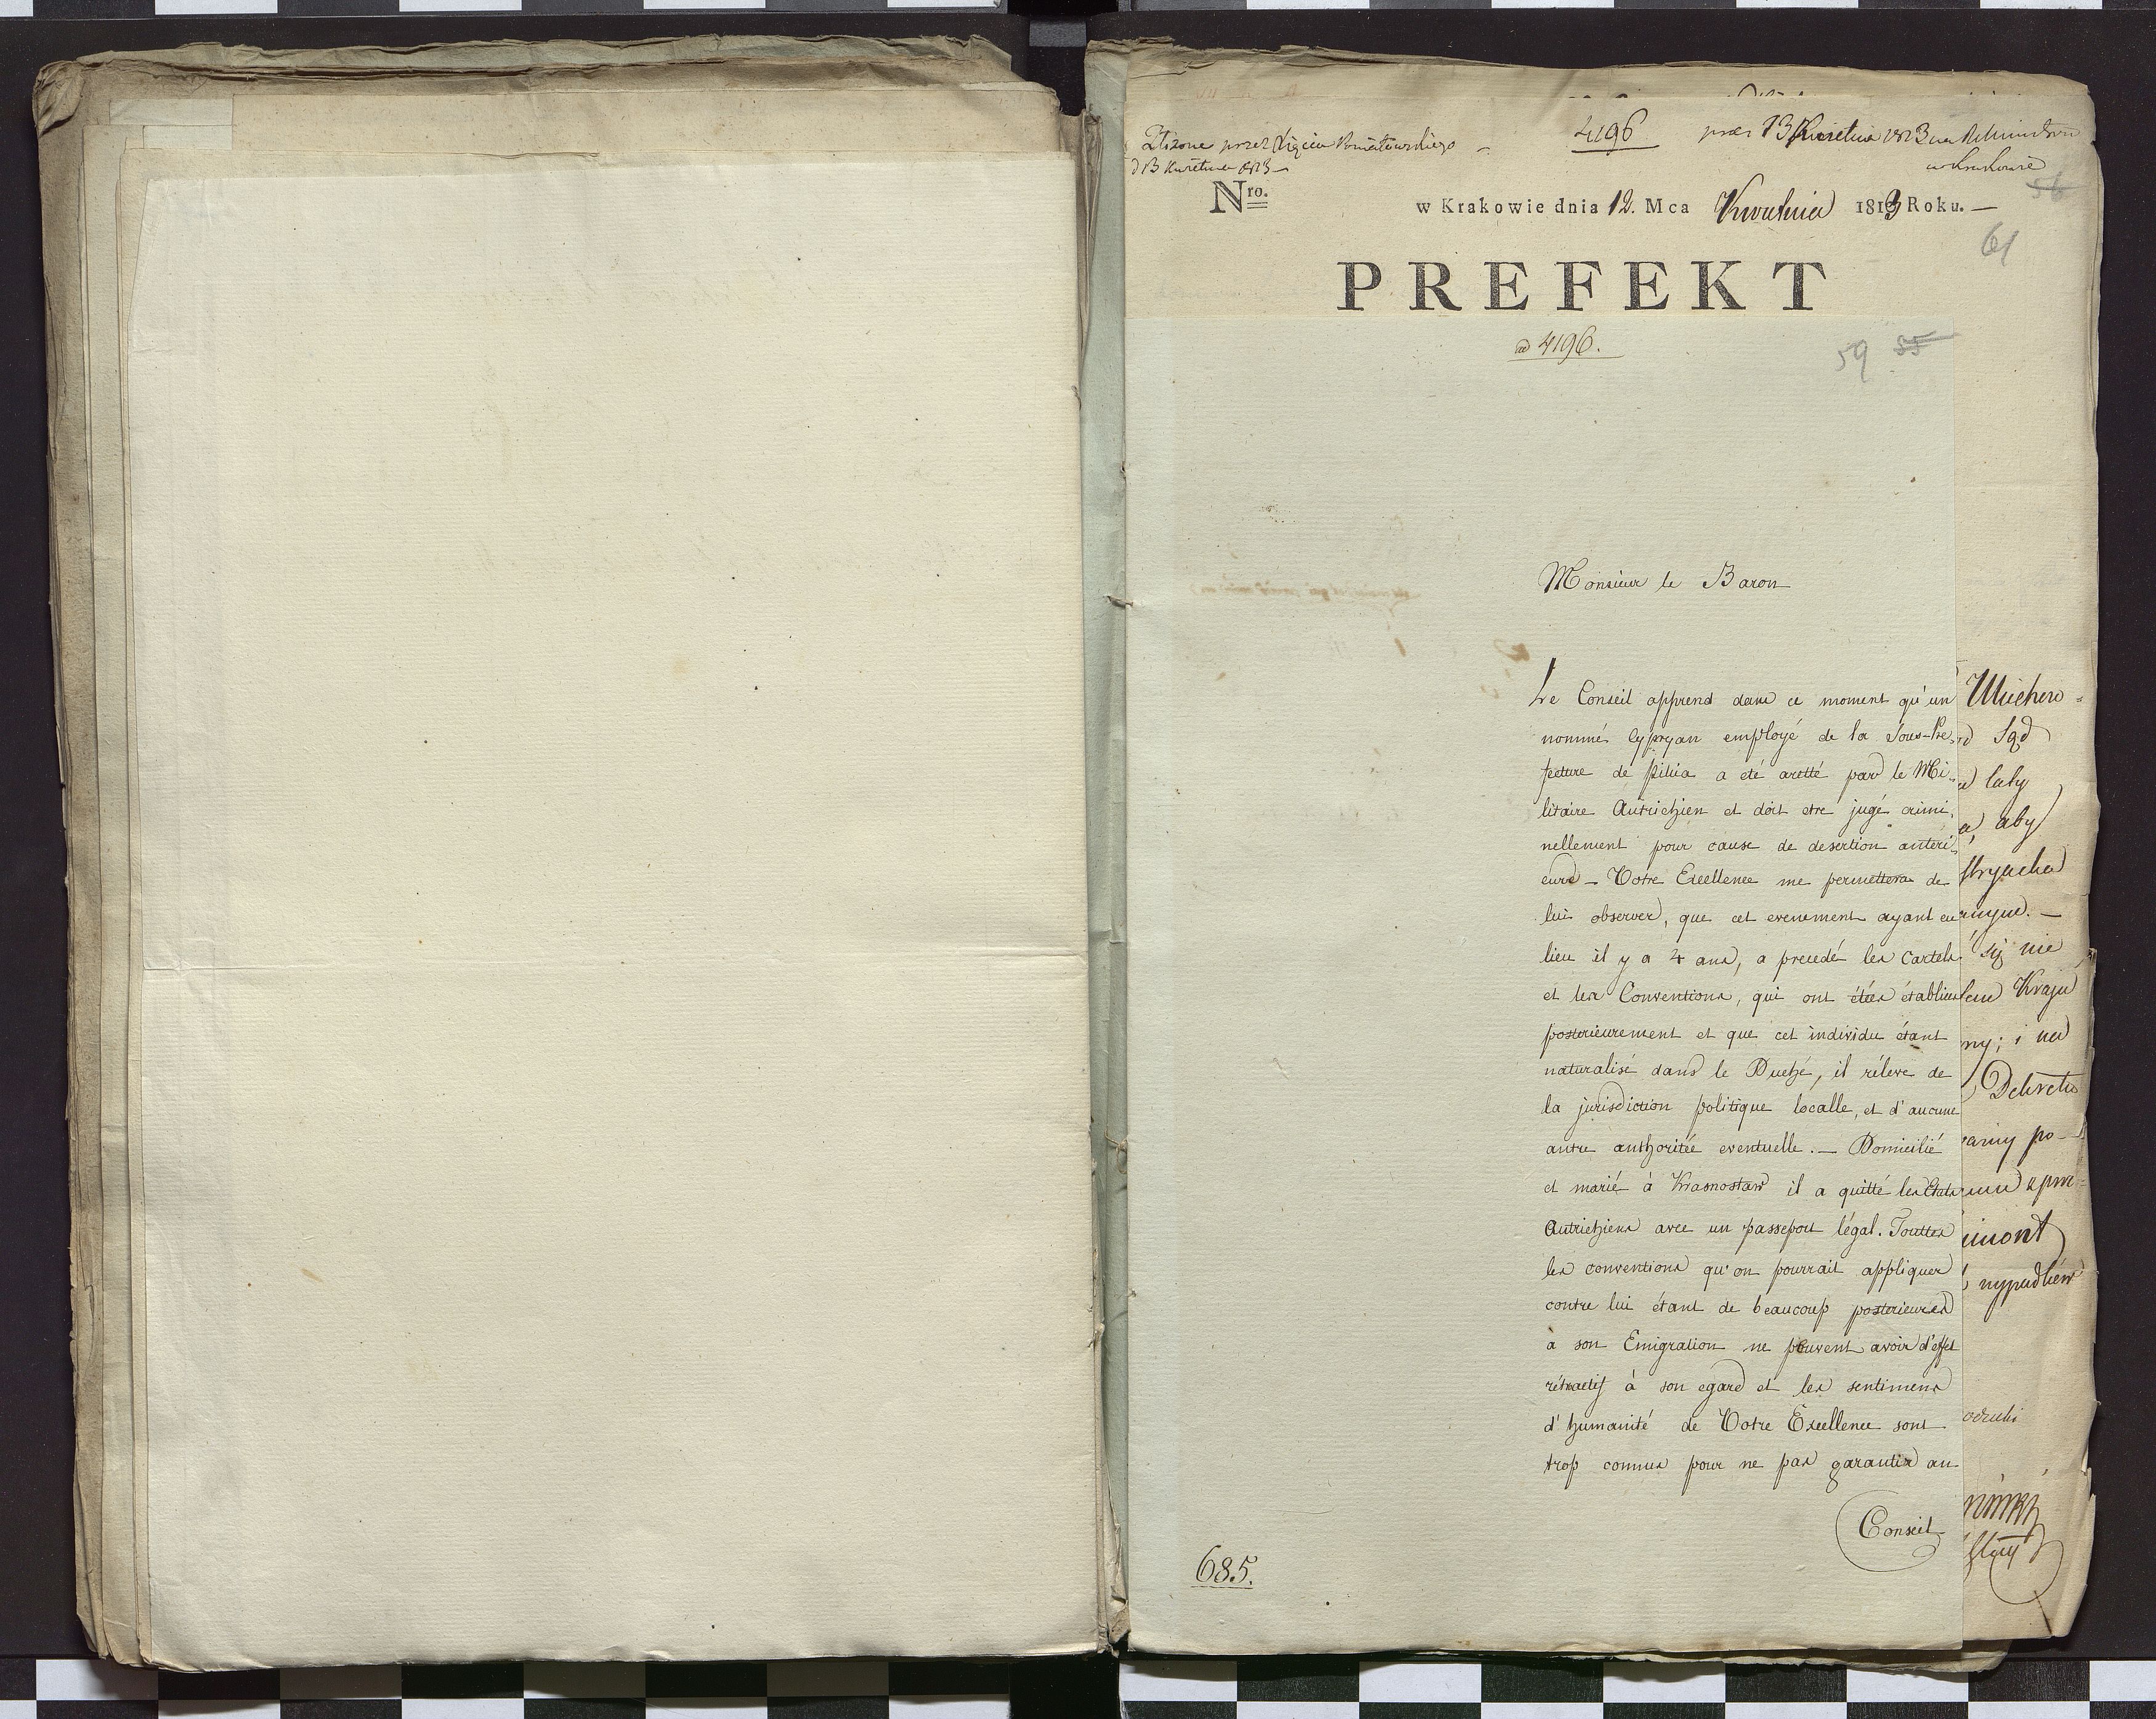 Złożone przez Xięcia Poniatowskiego –
d 13 Kwietnia 1813 –
4196
prae: 13 Kwietnia 1813
w Krakowie
56
Nro.
w Krakowie dnia 12. Mca Kwietnia 1813 Roku. —
61
PREFEKT
ad 4196.
59 55
Monsieur le Baron
Le Conseil apprend dans ce moment qu'un
nommé Cypryan employé de la Sous-Pre-
fecture de Pilica a été aretté par le Mi-
litaire Autrichien et doit etre jugé crimi-
nellement pour cause de desertion anteri-
eure – Votre Excellence me permettera de
lui observer, que cet evenement ayant eu
lieu il y a 4 ans, a precedé les Cartels
et les Conventions, qui ont étées établies
posterieurement et que cet individu étant
naturalisé dans le Duché, il rélève de
la jurisdiction politique localle, et d'aucune
autre authoritée eventuelle. — Domicilié
et marié à Krasnostaw il a quitté les Etats
Autrichiens avec un passeport légal. Touttes
les conventions qu'on pourrait appliquer
contre lui étant de beaucoup posterieures
à son Emigration ne peuvent avoir d'effet
rétroactif à son egard et les sentimens
d'humanité de Votre Excellence sont
trop connus pour ne pas garantir au
Conseil
685.
Sąd
laty
aby
się nie
Kraju
i na
Dekretu
po-